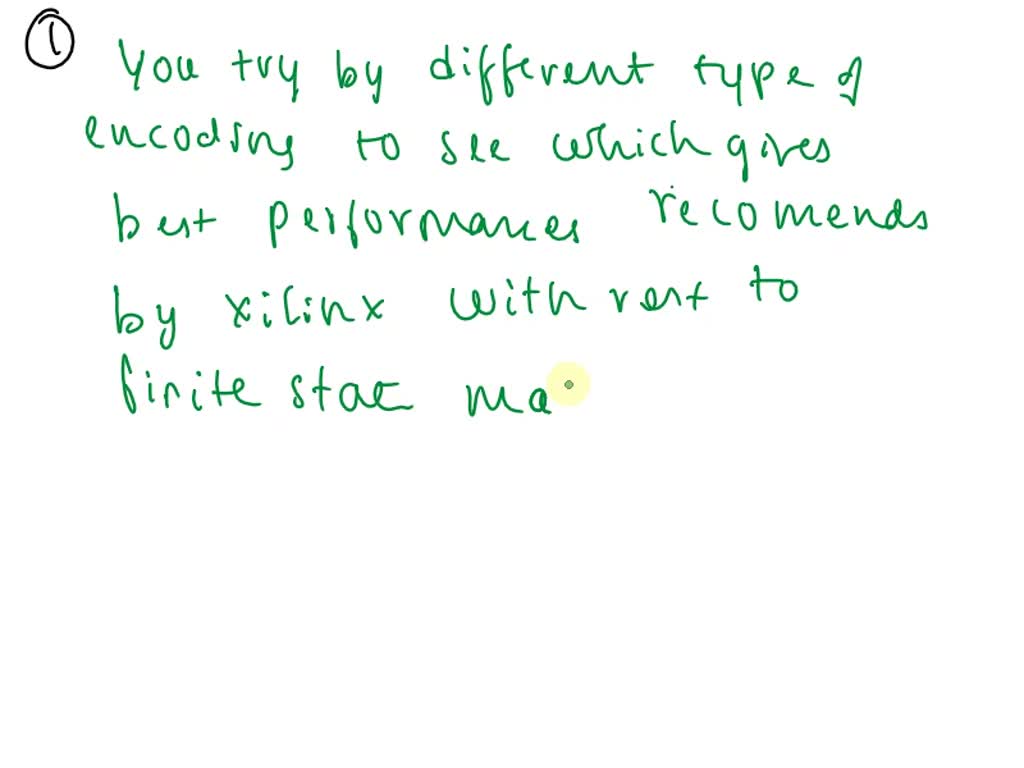 ①
You try by different type of
encoding to see which gives
best performances recomends
by xilinx with rest to
finite stat ma